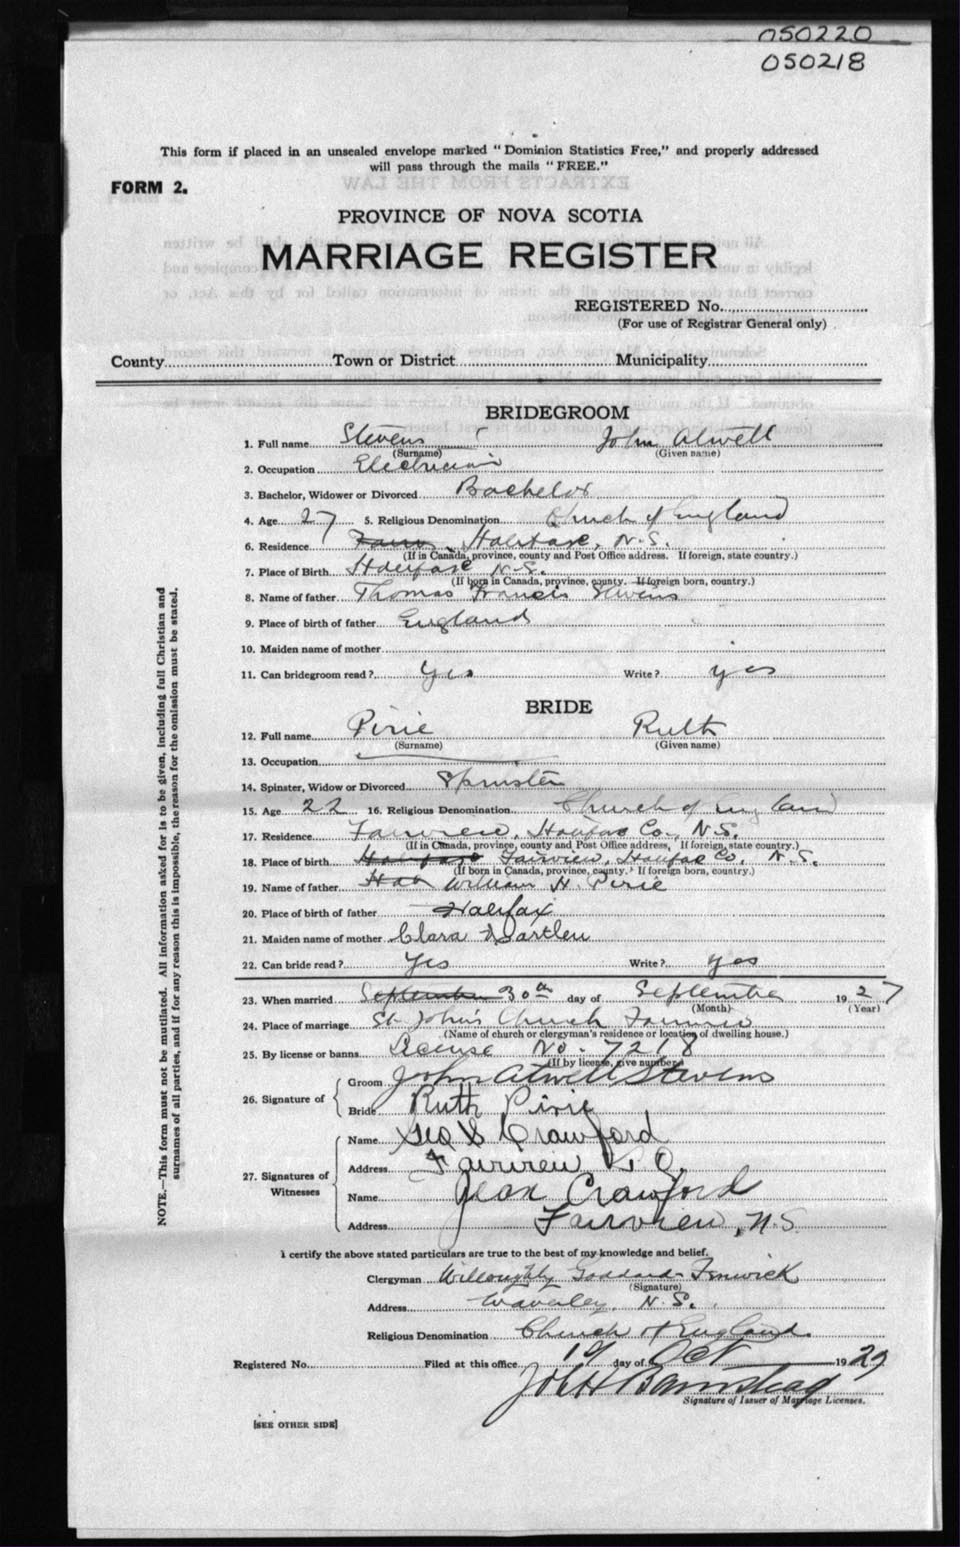 050220
050218
This form if placed in an unsealed envelope marked "Dominion Statistics Free," and properly addressed
will pass through the mails "FREE."
FORM 2.
PROVINCE OF NOVA SCOTIA
MARRIAGE REGISTER
REGISTERED No.
(For use of Registrar General only)
County Town or District Municipality
BRIDEGROOM
1. Full name Stevens John Atwell
(Surname) (Given name)
2. Occupation Electrician
3. Bachelor, Widower or Divorced Bachelor
4. Age 27 5. Religious Denomination Church of England
6. Residence Halifax, N.S.
(If in Canada, province, county and Post Office address. If foreign, state country.)
7. Place of Birth Halifax N.S.
(If born in Canada, province, county. If foreign born, country.)
8. Name of father Thomas Francis Stevens
9. Place of birth of father England
10. Maiden name of mother
11. Can bridegroom read? Yes Write? yes
BRIDE
12. Full name Pirie Ruth
(Surname) (Given name)
13. Occupation
14. Spinster, Widow or Divorced Spinster
15. Age 22 16. Religious Denomination Church of England
17. Residence Fairview, Halifax Co., N.S.
(If in Canada, province, county and Post Office Address, If foreign, state country.)
18. Place of birth Halifax Fairview, Halifax Co. N.S.
(If born in Canada, province, county. If foreign born, country.)
19. Name of father William H. Pirie
20. Place of birth of father Halifax
21. Maiden name of mother Clara Hartlen
22. Can bride read? Yes Write? yes
23. When married September 30th day of September 1927
(Month) (Year)
24. Place of marriage St. John's Church Fairview
(Name of church or clergyman's residence or location of dwelling house.)
25. By license or banns License No. 7218
(If by license, give number)
26. Signature of
Groom John Atwell Stevens
Bride Ruth Pirie
27. Signatures of Witnesses
Name Geo S Crawford
Address Fairview P.O.
Name Jean Crawford
Address Fairview, N.S.
I certify the above stated particulars are true to the best of my knowledge and belief.
Clergyman Willoughby Goddard Fenwick
(Signature)
Address Waverley, N.S.
Religious Denomination Church of England
Registered No. Filed at this office 19 day of Oct 1927
Signature of Issuer of Marriage Licenses.
[SEE OTHER SIDE]
NOTE.—This form must not be mutilated. All information asked for is to be given, including full Christian and
surnames of all parties, and if for any reason this is impossible, the reason for the omission must be stated.